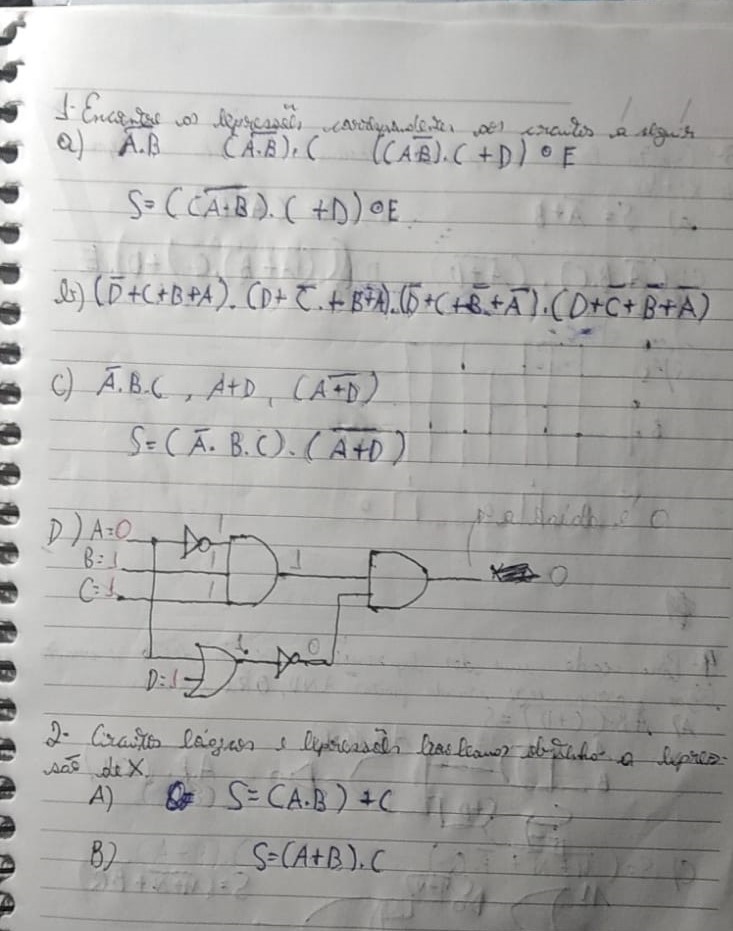 1- Encontre as expressões correspondentes aos circuitos a seguir
a) A̅.B (A̅.̅B̅).C ((A̅B̅).C + D) ⊙ E
S= ((A̅+̅B̅).C +D) ⊙ E
b) (D̅+C+B+A).(D+C̅+B+A).(D̅+C+B̅+A̅).(D+C̅+B̅+A̅)
C) A̅.B.C, A+D, (A̅+̅D̅)
S=(A̅. B.C).(A̅+̅D̅)
D) A=0 1
B=1 1 1
C=1 1 0
1 0
D=1
2- Circuitos lógicos e expressões booleanas a expres-
são de X.
A) S=(A.B)+C
B) S=(A+B).C